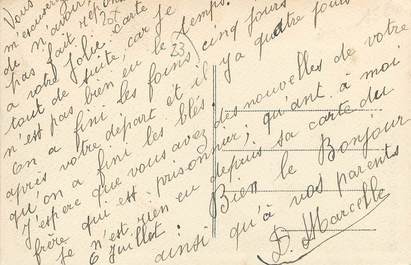 Vous
m'excuserez
de n'avoir
pas fait réponse
a votre jolie carte
tout de suite, car je
n'est pas bien eu le temps.
On a fini les foins, cinq jours
après votre départ et il y a quatre jours
qu'on a fini les blés.
J'espère que vous avez des nouvelles de votre
frère qui est prisonnier; qu'ant à moi
je n'est rien eu depuis sa carte du
6 juillet. Bien le Bonjour
ainsi qu'à vos parents
D. Marcelle